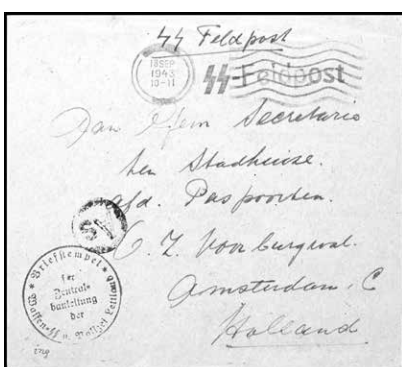 SS Feldpost
18 SEP
1943
10-11
SS-Feldpost
Aan Secretarie
ten Stadhuize.
afd. Paspoorten.
O. Z. Voorburgwal.
Amsterdam, C
Holland
Briefstempel
der
Zentral-
bauleitung
der
Waffen-SS u. Polizei